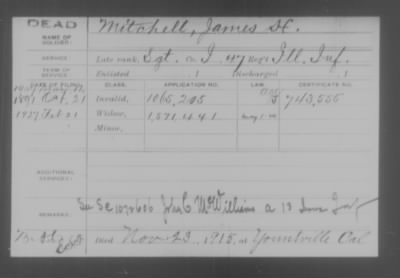 DEAD
Mitchell, James H.
NAME OF SOLDIER:
SERVICE
Late rank, Sgt. Co I, 47 Reg't Ill. Inf.
TERM OF SERVICE
Enlisted , 1 Discharged , 1
DATE OF FILING. CLASS. APPLICATION NO. LAW. CERTIFICATE NO.
1891 21 Invalid, 1065,205 J 743,555
1927 Feb 21 Widow, 1,571,441
Minor,
ADDITIONAL SERVICES:
See SC John C McWilliams a 13 Inf
REMARKS:
died Nov 23, 1915, at Yountville Cal